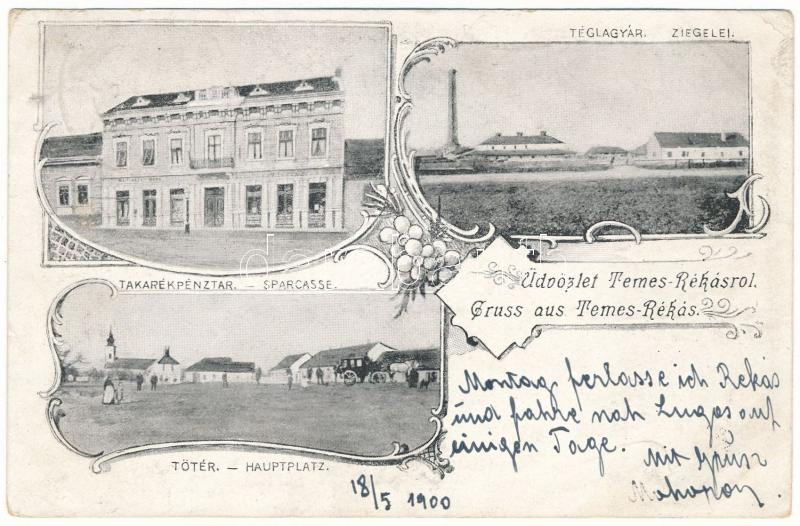 TÉGLAGYÁR. ZIEGELEI.
TAKARÉKPÉNZTAR. — SPARCASSE.
Üdvözlet Temes-Rékásrol.
Gruss aus Temes-Rékás.
Montag ferlasse ich Rekás
und fahre nah Lugos auf
einigen Tage.
Mit Grüsz
TÖTÉR. — HAUPTPLATZ.
18/5 1900